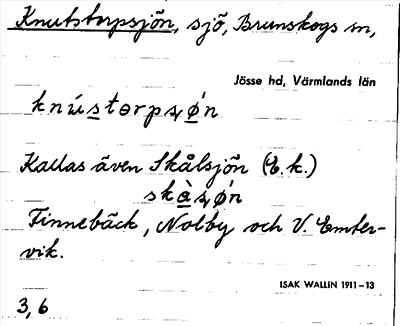 Knutstorpsjön, sjö, Brunskogs sn,
Jösse hd, Värmlands län
knústorpsɟǿn
Kallas även Skålsjön (E.k.)
skàsɟǿn
Finnebäck, Nolby och V. Emter-
vik.
ISAK WALLIN 1911–13
3,6